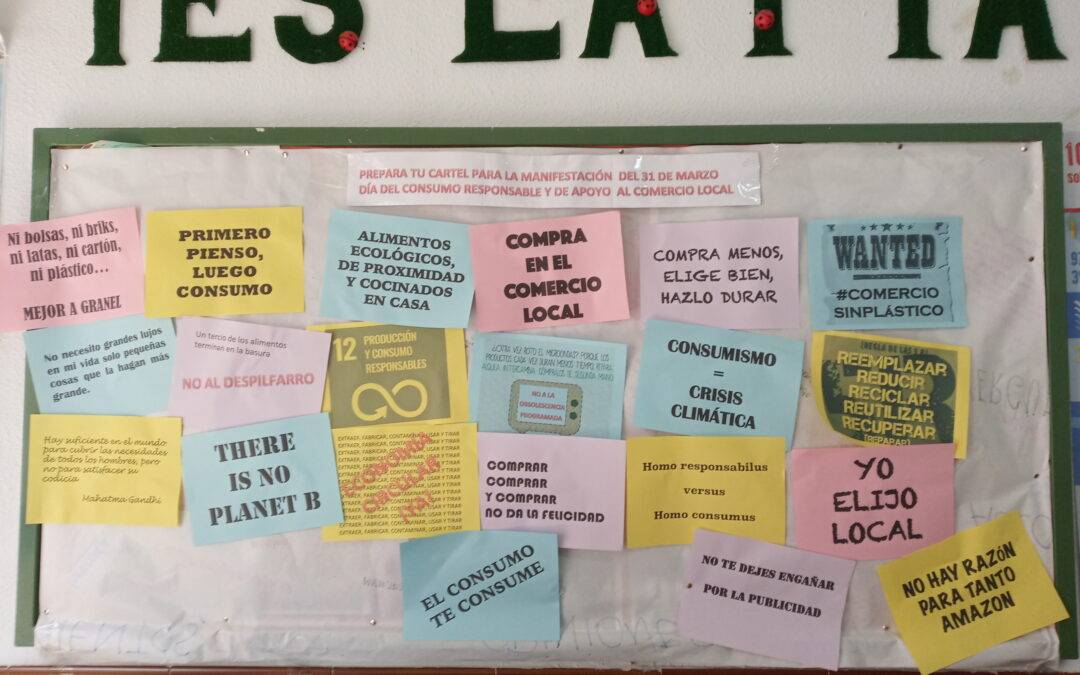 IES LA PATA
PREPARA TU CARTEL PARA LA MANIFESTACIÓN DEL 31 DE MARZO
DÍA DEL CONSUMO RESPONSABLE Y DE APOYO AL COMERCIO LOCAL
Ni bolsas, ni briks,
ni latas, ni cartón,
ni plástico...
MEJOR A GRANEL
PRIMERO
PIENSO,
LUEGO
CONSUMO
ALIMENTOS
ECOLÓGICOS,
DE PROXIMIDAD
Y COCINADOS
EN CASA
COMPRA
EN EL
COMERCIO
LOCAL
COMPRA MENOS,
ELIGE BIEN,
HAZLO DURAR
WANTED
#COMERCIO
SINPLÁSTICO
No necesito grandes lujos
en mi vida solo pequeñas
cosas que la hagan más
grande.
Un tercio de los alimentos
terminan en la basura
NO AL DESPILFARRO
12 PRODUCCIÓN
Y CONSUMO
RESPONSABLES
¿OTRA VEZ ROTO EL MICROONDAS? PORQUE LOS
PRODUCTOS CADA VEZ DURAN MENOS TIEMPO REPARA,
ALQUILA, INTERCAMBIA, CÓMPRALOS DE SEGUNDA MANO
NO A LA
OBSOLESCENCIA
PROGRAMADA
CONSUMISMO
=
CRISIS
CLIMÁTICA
REEMPLAZAR
REDUCIR
RECICLAR
REUTILIZAR
RECUPERAR
(REPARAR)
Hay suficiente en el mundo
para cubrir las necesidades
de todos los hombres, pero
no para satisfacer su
codicia
Mahatma Gandhi
THERE
IS NO
PLANET B
EXTRAER, FABRICAR, CONTAMINAR, USAR Y TIRAR
ECONOMÍA
CIRCULAR
YA!
COMPRAR
COMPRAR
Y COMPRAR
NO DA LA FELICIDAD
Homo responsabilus
versus
Homo consumus
YO
ELIJO
LOCAL
EL CONSUMO
TE CONSUME
NO TE DEJES ENGAÑAR
POR LA PUBLICIDAD
NO HAY RAZÓN
PARA TANTO
AMAZON